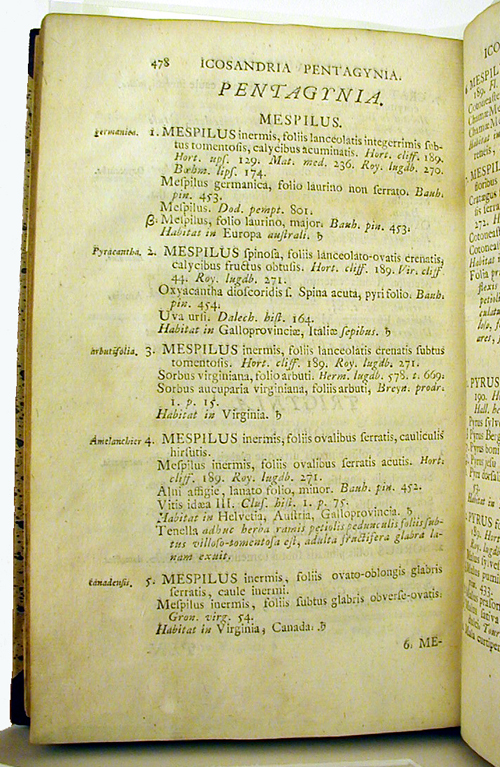 478 ICOSANDRIA PENTAGYNIA.
PENTAGYNIA.
MESPILUS.
germanica. 1. MESPILUS inermis, foliis lanceolatis integerrimis sub-
tus tomentosis, calycibus acuminatis. Hort. cliff. 189.
Hort. upſ. 129. Mat. med. 236. Roy. lugdb. 270.
Bœhm. lipſ. 174.
Meſpilus germanica, folio laurino non ſerrato. Bauh.
pin. 453.
Meſpilus. Dod. pempt. 801.
β. Meſpilus, folio laurino, major. Bauh. pin. 453.
Habitat in Europa auſtrali. ♄
Pyracantha. 2. MESPILUS ſpinoſa, foliis lanceolato-ovatis crenatis,
calycibus fructus obtuſis. Hort. cliff. 189. Vir. cliff.
44. Roy. lugdb. 271.
Oxyacantha dioſcoridis ſ. Spina acuta, pyri folio. Bauh.
pin. 454.
Uva urſi. Dalech. hiſt. 164.
Habitat in Galloprovinciæ, Italiæ ſepibus. ♄
arbutifolia. 3. MESPILUS inermis, foliis lanceolatis crenatis ſubtus
tomentoſis. Hort. cliff. 189. Roy. lugdb. 271.
Sorbus virginiana, folio arbuti. Herm. lugdb. 578. t. 669.
Sorbus aucuparia virginiana, foliis arbuti, Breyn. prodr.
1. p. 15.
Habitat in Virginia. ♄
Amelanchier 4. MESPILUS inermis, foliis ovalibus ſerratis, cauliculis
hirſutis.
Meſpilus inermis, foliis ovalibus ſerratis acutis. Hort.
cliff. 189. Roy. lugdb. 271.
Alni effigie, lanato folio, minor. Bauh. pin. 452.
Vitis idæa III. Cluſ. hiſt. 1. p. 75.
Habitat in Helvetia, Auſtria, Galloprovincia. ♄
Tenella adhuc herba ramis petiolis pedunculis foliis ſub-
tus villoſo-tomentoſa eſt, adulta fructifera glabra la-
nam exuit.
canadenſis. 5. MESPILUS inermis, foliis ovato-oblongis glabris
ſerratis, caule inermi.
Meſpilus inermis, foliis ſubtus glabris obverſe-ovatis.
Gron. virg. 54.
Habitat in Virginia, Canada. ♄
6. ME-